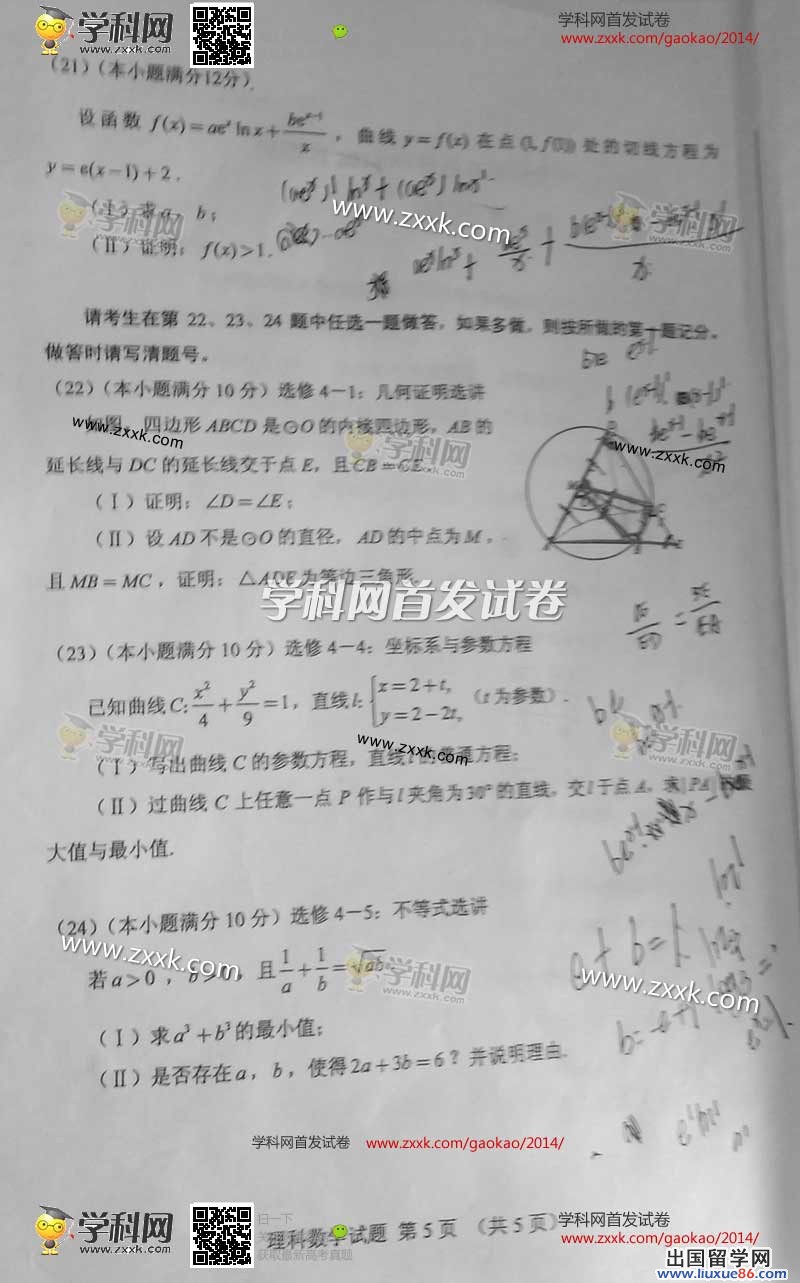 学科网
www.zxxk.com
学科网首发试卷
www.zxxk.com/gaokao/2014/
(21)(本小题满分12分)
设函数 f(x)=aeˣ ln x+beˣ⁻¹/x ，曲线 y=f(x) 在点 (1, f(1)) 处的切线方程为
y=e(x-1)+2．
www.zxxk.com
(Ⅰ) 求 a，b；
学科网
www.zxxk.com
(Ⅱ) 证明：f(x)>1．
请考生在第 22、23、24 题中任选一题做答，如果多做，则按所做的第一题记分．
做答时请写清题号。
(22)(本小题满分 10 分) 选修 4-1：几何证明选讲
如图，四边形 ABCD 是⊙O 的内接四边形，AB 的
www.zxxk.com
学科网
www.zxxk.com
延长线与 DC 的延长线交于点 E，且 CB=CE．
(Ⅰ) 证明：∠D=∠E；
(Ⅱ) 设 AD 不是⊙O 的直径，AD 的中点为 M，
且 MB=MC，证明：△ADE 为等边三角形．
学科网首发试卷
(23)(本小题满分 10 分) 选修 4-4：坐标系与参数方程
已知曲线 C: x²/4+y²/9=1，直线 l: {x=2+t, y=2-2t, （t 为参数）．
学科网
www.zxxk.com
www.zxxk.com
学科网
www.zxxk.com
(Ⅰ) 写出曲线 C 的参数方程，直线 l 的普通方程；
(Ⅱ) 过曲线 C 上任意一点 P 作与 l 夹角为 30° 的直线，交 l 于点 A，求|PA|的最
大值与最小值．
(24)(本小题满分 10 分) 选修 4-5：不等式选讲
www.zxxk.com
若 a>0，b>0，且 1/a+1/b=√ab．
学科网
www.zxxk.com
www.zxxk.com
(Ⅰ) 求 a³+b³ 的最小值；
(Ⅱ) 是否存在 a，b，使得 2a+3b=6？并说明理由．
学科网首发试卷 www.zxxk.com/gaokao/2014/
学科网
www.zxxk.com
扫一下
获取最新高考真题
理科数学试题 第 5 页 （共 5 页）
学科网首发试卷
www.zxxk.com/gaokao/2014/
出国留学网
www.liuxue86.com